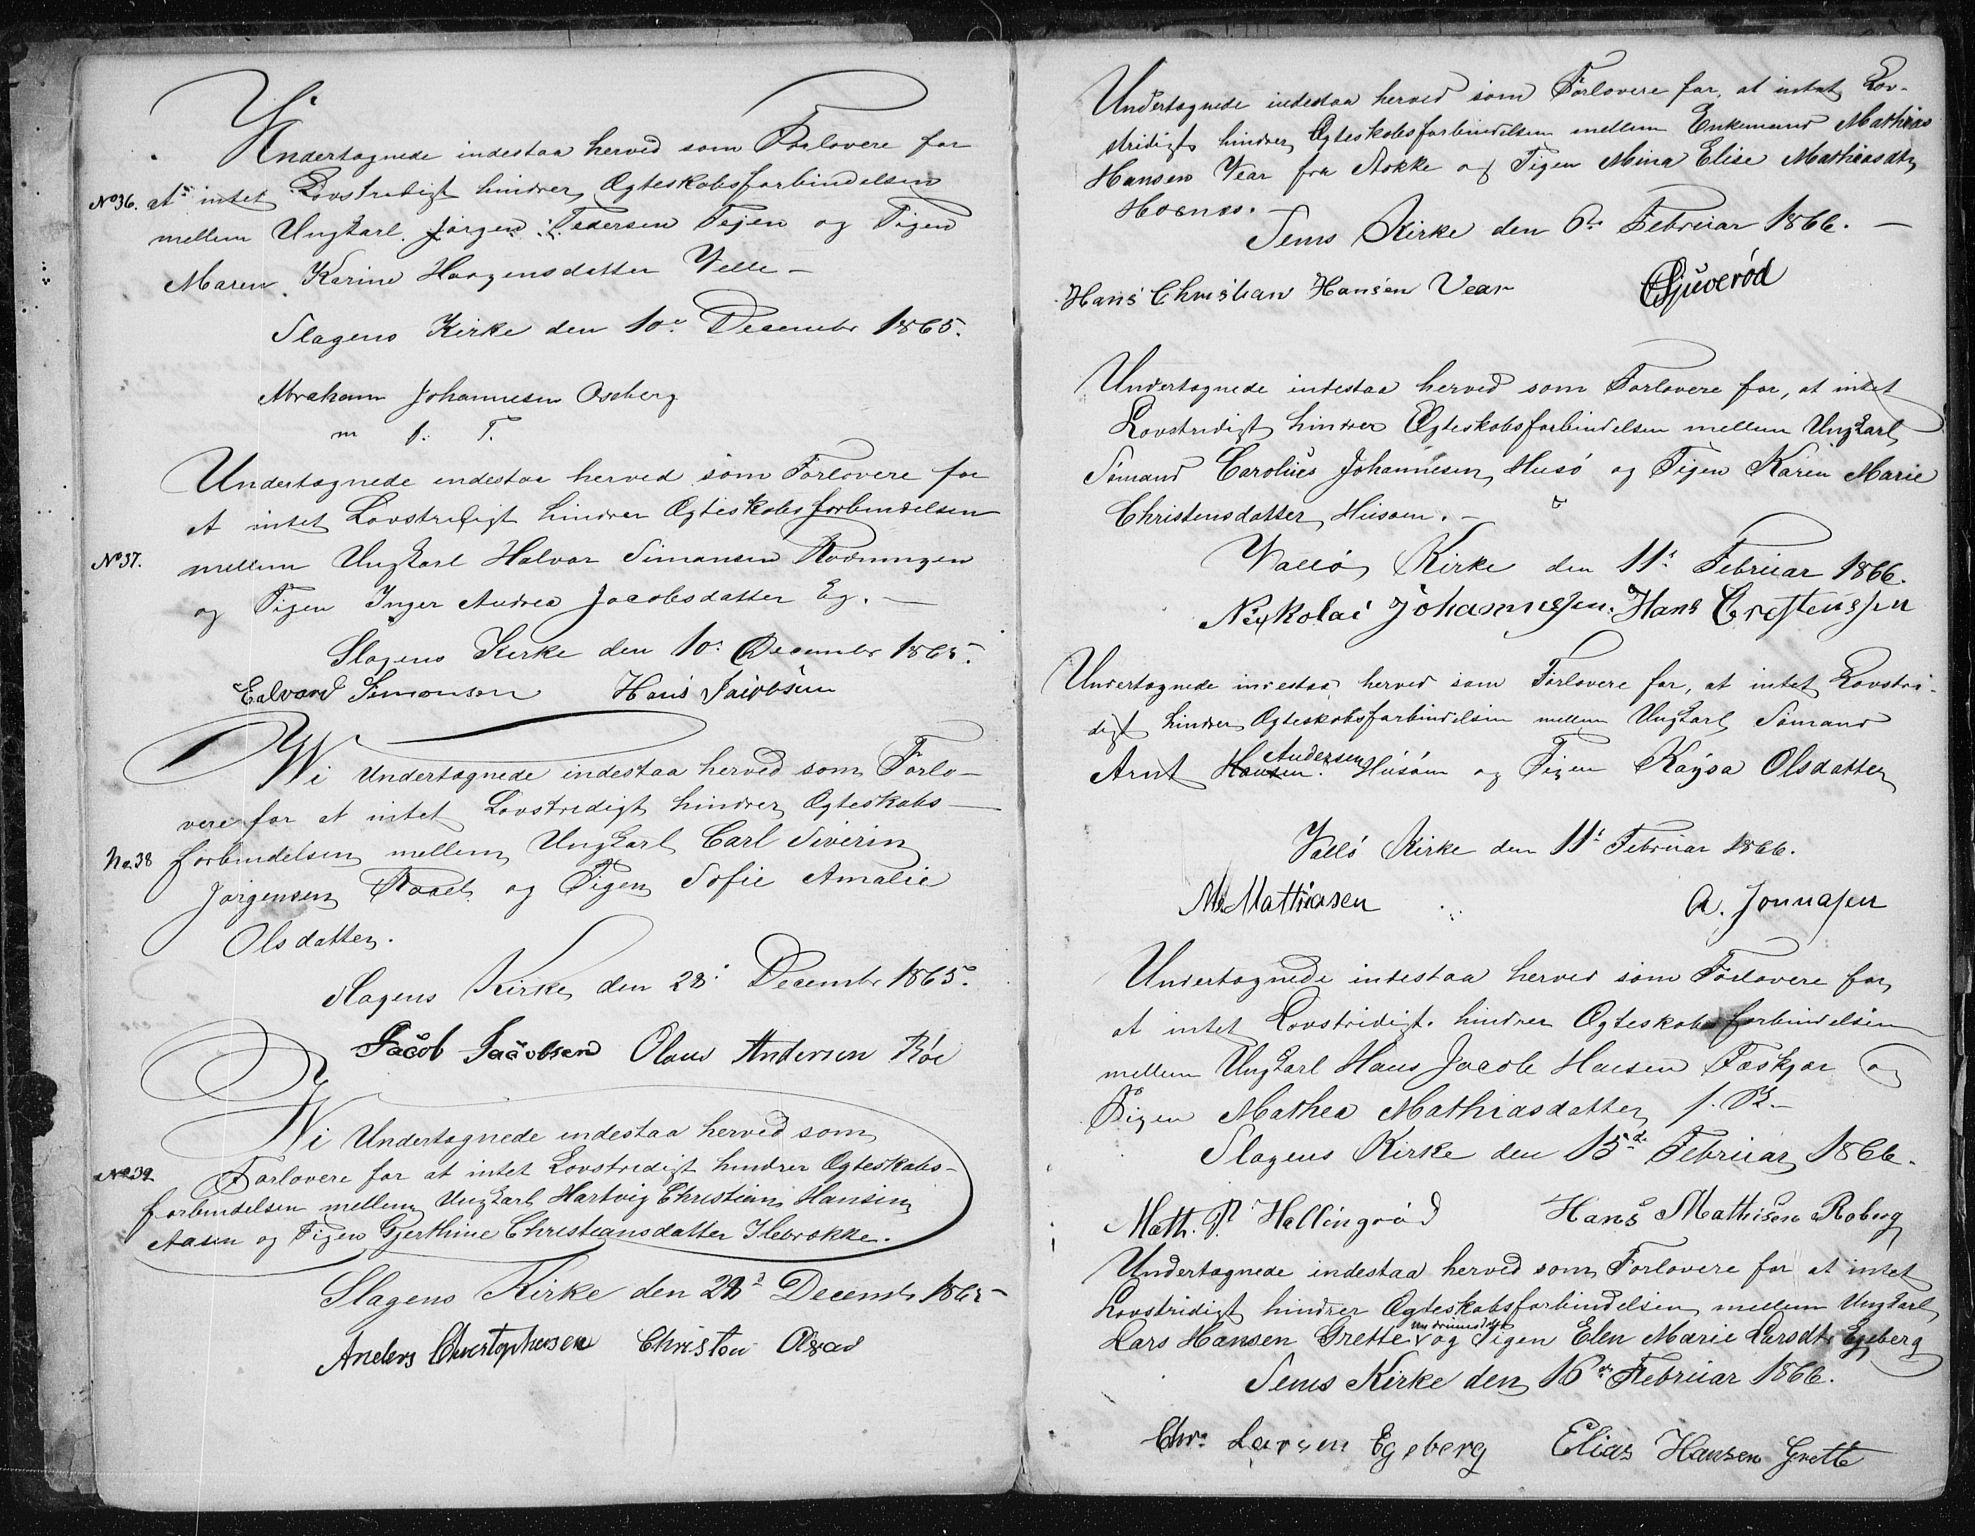 Undertegnede indestaa herved som Forlovere for
No 36. at intet Lovstridigt hindrer Ægteskabsforbindelsen
mellem Ungkarl Jørgen Pedersen Tejen og Pigen
Maren Karine Haagensdatter Velle –
Slagens Kirke den 10de December 1865.
Abraham Johannesen Oseberg
m f. T.
Undertegnede indestaa herved som Forlovere for
at intet Lovstridigt hindrer Ægteskabsforbindelsen
No 37. mellem Ungkarl Halvor Simonsen Rødningen
og Pigen Inger Andrea Jacobsdatter Eg. –
Slagens Kirke den 10. December 1865.
Edvard Simonsen Hans Jacobsen
Wi Undertegnede indestaa herved som Forlo-
vere for at intet Lovstridigt hindrer Ægteskabs-
No. 38 forbindelsen mellem Ungkarl Carl Siverin
Jørgensen Roael og Pigen Sofie Amalie
Olsdatter.
Slagens Kirke den 28. December 1865.
Jacob Jacobsen Olaus Andersen Røe
Wi Undertegnede indestaa herved som
No 39 Forlovere for at intet Lovstridigt hindrer Ægteskabs-
forbindelsen mellem Ungkarl Hartvig Christian Hansen
Aasen og Pigen Gjerthine Christiansdatter Ilebrække.
Slagens Kirke den 28de December 1865
Anders Christophersen Christen
Undertegnede indestaa herved som Forlovere for, at intet Lov-
stridigt hindrer Ægteskabsforbindelsen mellem Enkemand Mathias
Hansen Vear fra Stokke og Pigen Mina Elise Mathiasdtr
Hoenes. –
Sems Kirke den 6te Februar 1866. –
Hans Christian Hansen Vear CSjuverød
Undertegnede indestaa herved som Forlovere for, at intet
Lovstridigt hindrer Ægteskabsforbindelsen mellem Ungkarl
Sømand Carolius Johannesen Husø og Pigen Karen Marie
Christensdatter Husøen. –
Vallø Kirke den 11te Februar 1866.
Nikolai Johannesen. Hans Crestensen
Undertegnede indestaa herved som Forlovere for, at intet Lovstri-
digt hindrer Ægteskabsforbindelsen mellem Ungkarl Sømand
Arnt Hansen Andersen Husøen og Pigen Kaysa Olsdatter
Vallø Kirke den 11te Februar 1866.
M. Mathiasen A. Jonnasen
Undertegnede indestaa herved som Forlovere for,
at intet Lovstridigt hindrer Ægteskabsforbindelsen
mellem Ungkarl Hans Jacob Hansen Feskjær og
Pigen Mathea Mathiasdatter s. B. –
Slagens Kirke den 15de Februar 1866.
Math. P. Hellingrød Hans Mathisen Roberg
Undertegnede indestaa herved som Forlovere for at intet
Lovstridigt hindrer Ægteskabsforbindelsen mellem Ungkarl
Lars Hansen Grette Undrumseiet og Pigen Elen Marie Larsdtr Egeberg
Sems Kirke den 16de Februar 1866.
Chr. Larsen Egeberg Elias Hansen Grette